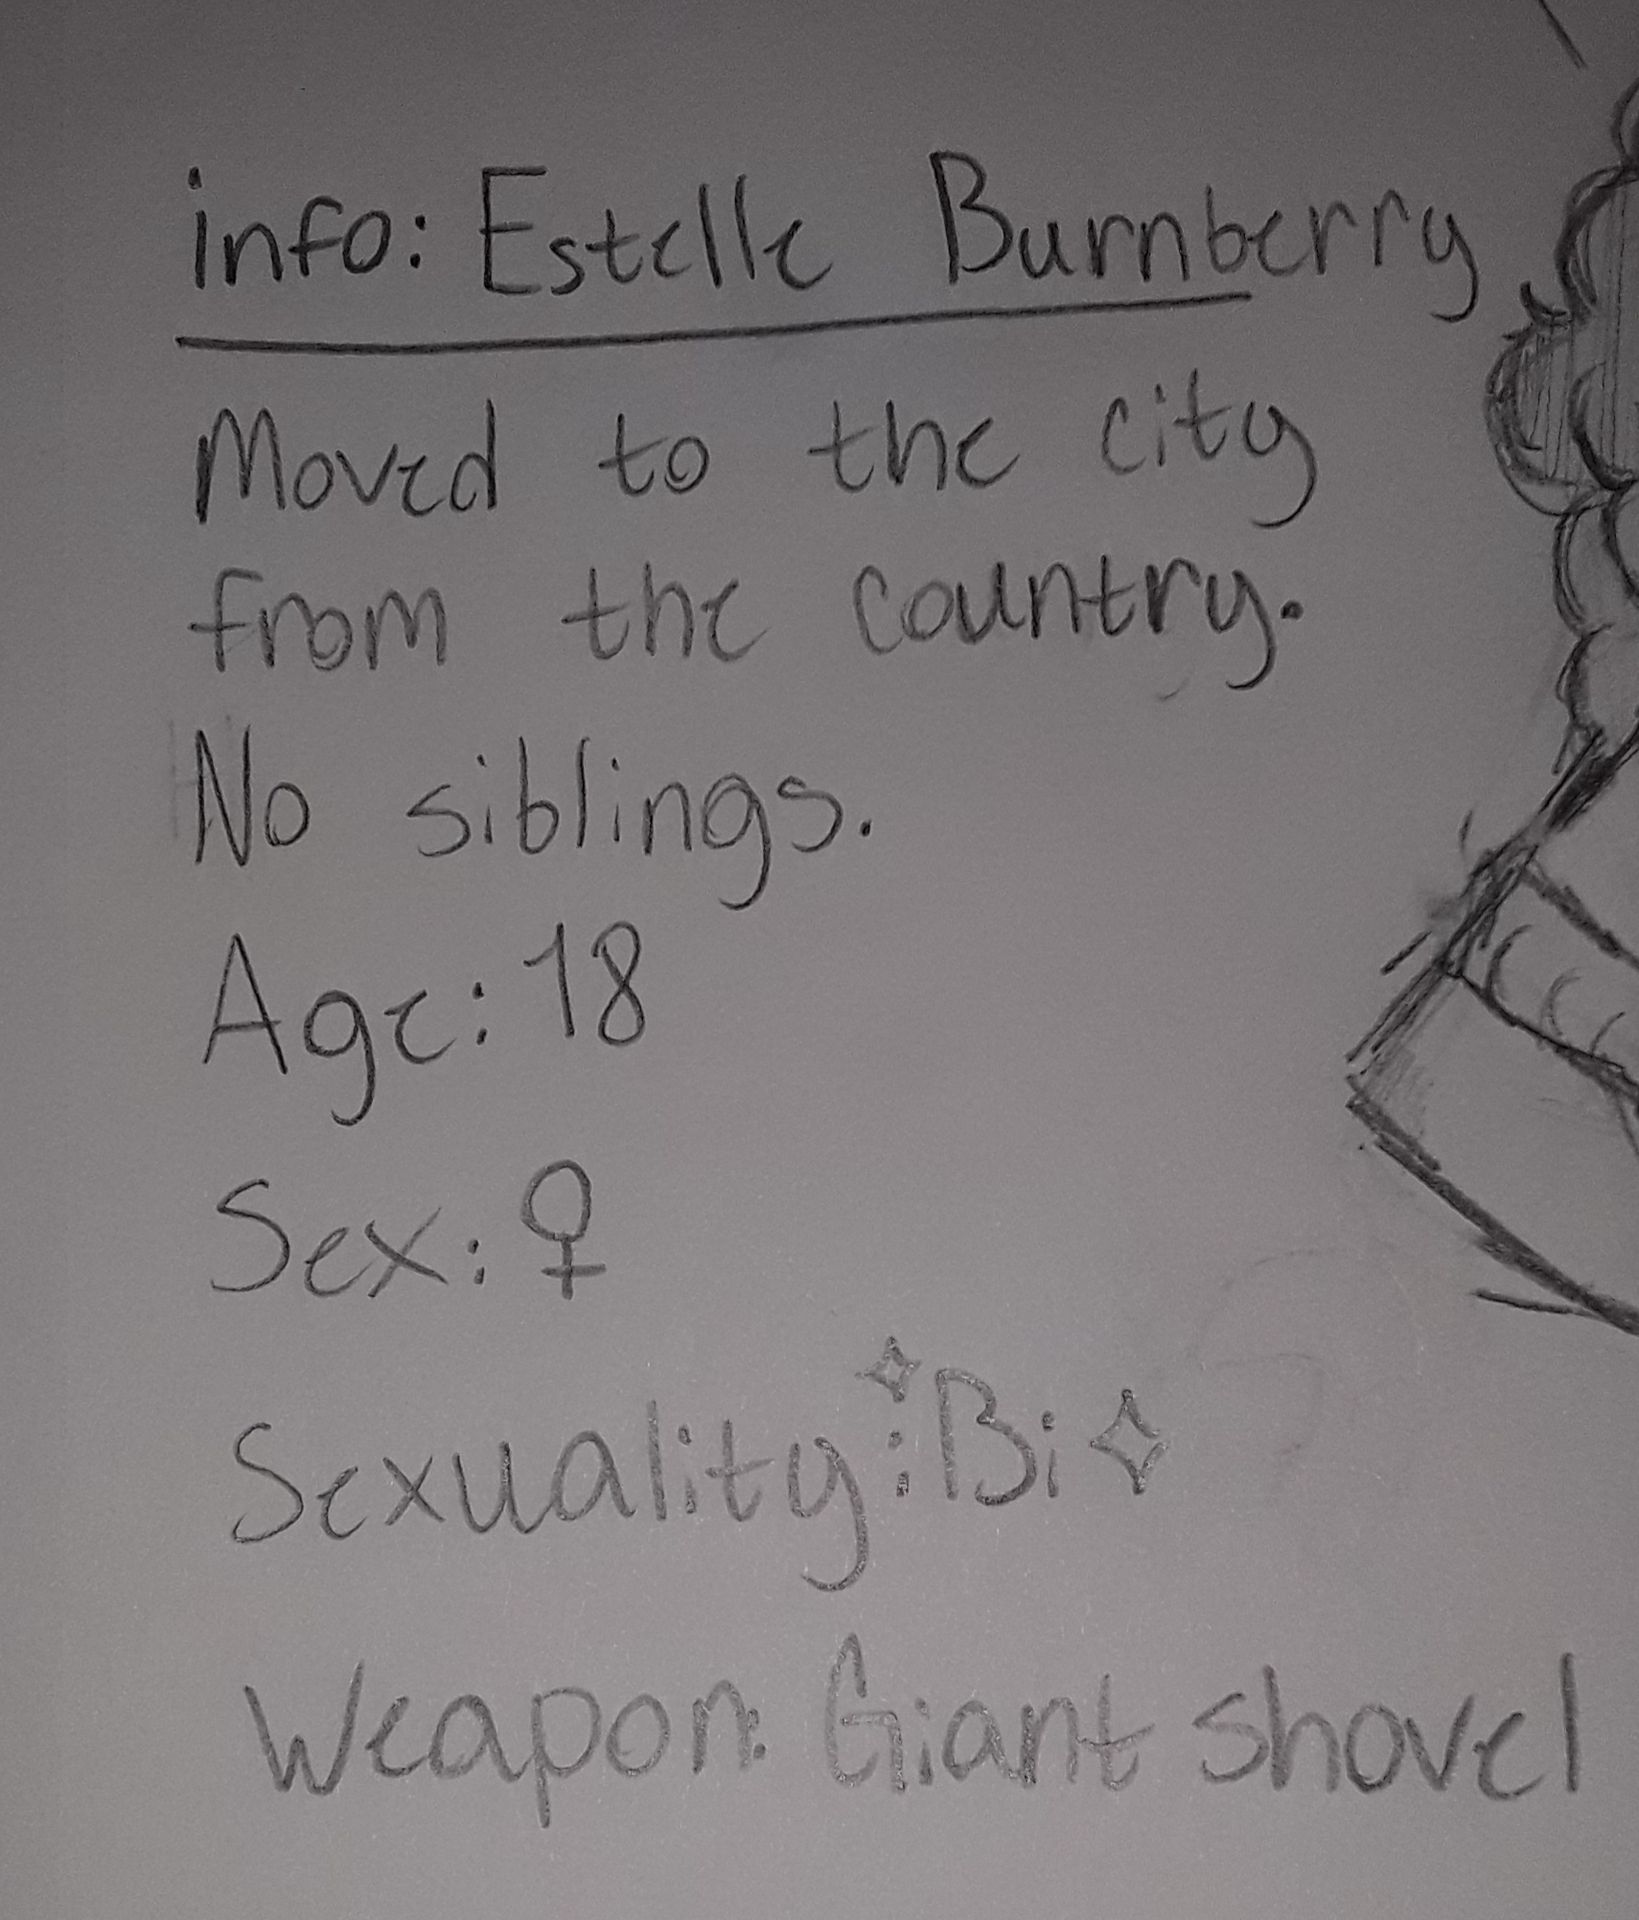 info: Estelle Burnberry
Moved to the city
from the country.
No siblings.
Age: 18
Sex: ♀
Sexuality: Bi
Weapon: Giant shovel